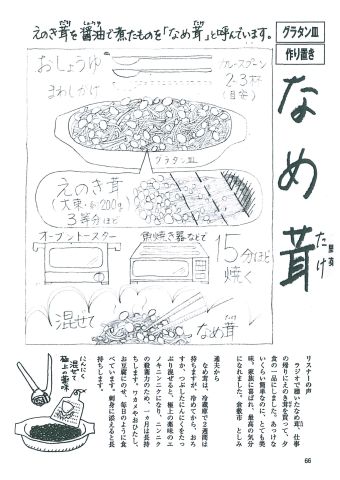 えのき茸を醤油で煮たものを「なめ茸」と呼んでいます。
だけ
しょうゆ
だけ
グラタン皿
作り置き
なめ茸
たけ
おしょうゆ
まわしかけ
カレースプーン
2~3杯
(目安)
グラタン皿
えのき茸
(大束・約200g)
3等分ほど
オーブントースター
魚焼き器などで
15分ほど
焼く
混ぜて
なめ茸
リスナーの声
ラジオで聴いたなめ茸、仕事
の帰りにえのき茸を買って、夕
食の一品にしました。あっけな
いくらい簡単なのに、とても美
味。家族に喜ばれ、最高の気分
になれました。倉敷市 としみ
達夫から
なめ茸は、冷蔵庫で2週間は
持ちますが、冷めてから、おろ
すか、つぶしたにんにくをたっ
ぷり混ぜると、極上の薬味のエ
ノキニンニクになり、ニンニク
の殺菌力のため、一ヵ月は長持
ちします。ワカメやおひたし、
お豆腐にのせ、毎日のように食
べています。刺身に添えると長
持ちします。
にんにく
混ぜて
極上の薬味
66